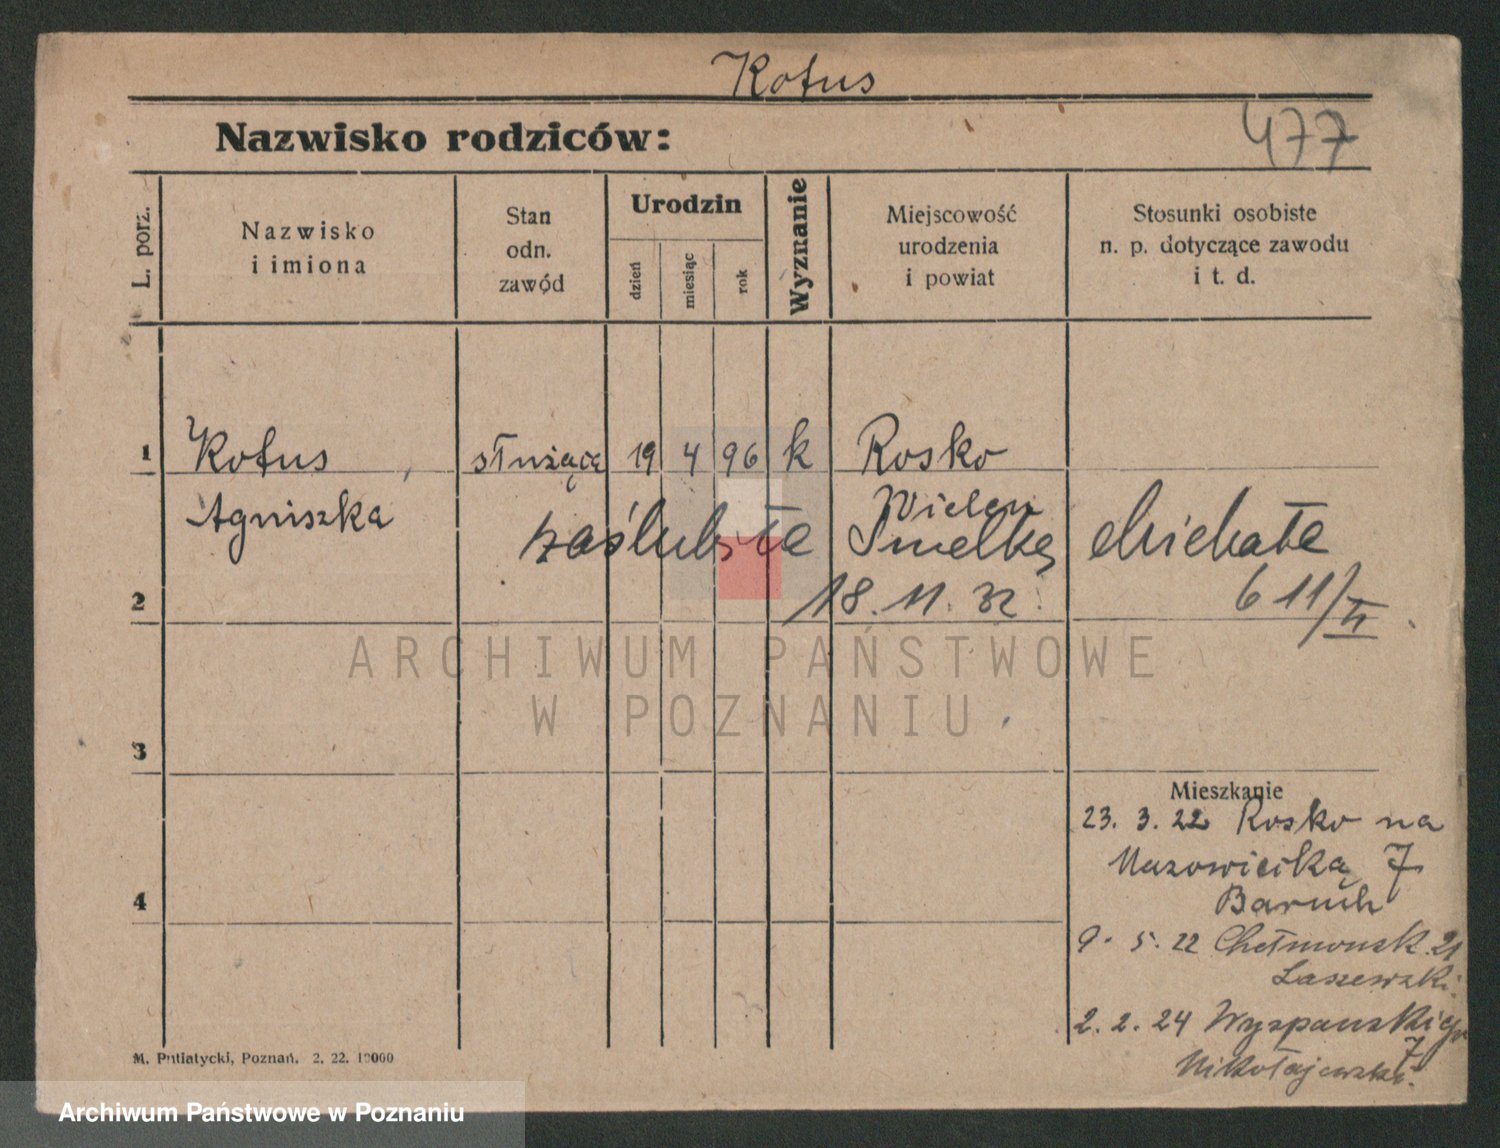 Kotus
Nazwisko rodziców:
477
L. porz.
Nazwisko
i imiona
Stan
odn.
zawód
Urodzin
dzień
miesiąc
rok
Wyznanie
Miejscowość
urodzenia
i powiat
Stosunki osobiste
n. p. dotyczące zawodu
i t. d.
1 Kotus służąca 19 4 96 k Rosko
Agniszka Wieleń
zaślubiła Smelkę Michała
2 18. 11. 32. 611/II
ARCHIWUM PAŃSTWOWE
W POZNANIU
3
Mieszkanie
23. 3. 22 Rosko na
Mazowiecką 7
4 Baruch
9. 5. 22 Chełmonsk. 21
Laszewski.
2. 2. 24 Wyspanskiego
7
Mikołajewski.
M. Putiatycki, Poznań. 2. 22. 10000
Archiwum Państwowe w Poznaniu